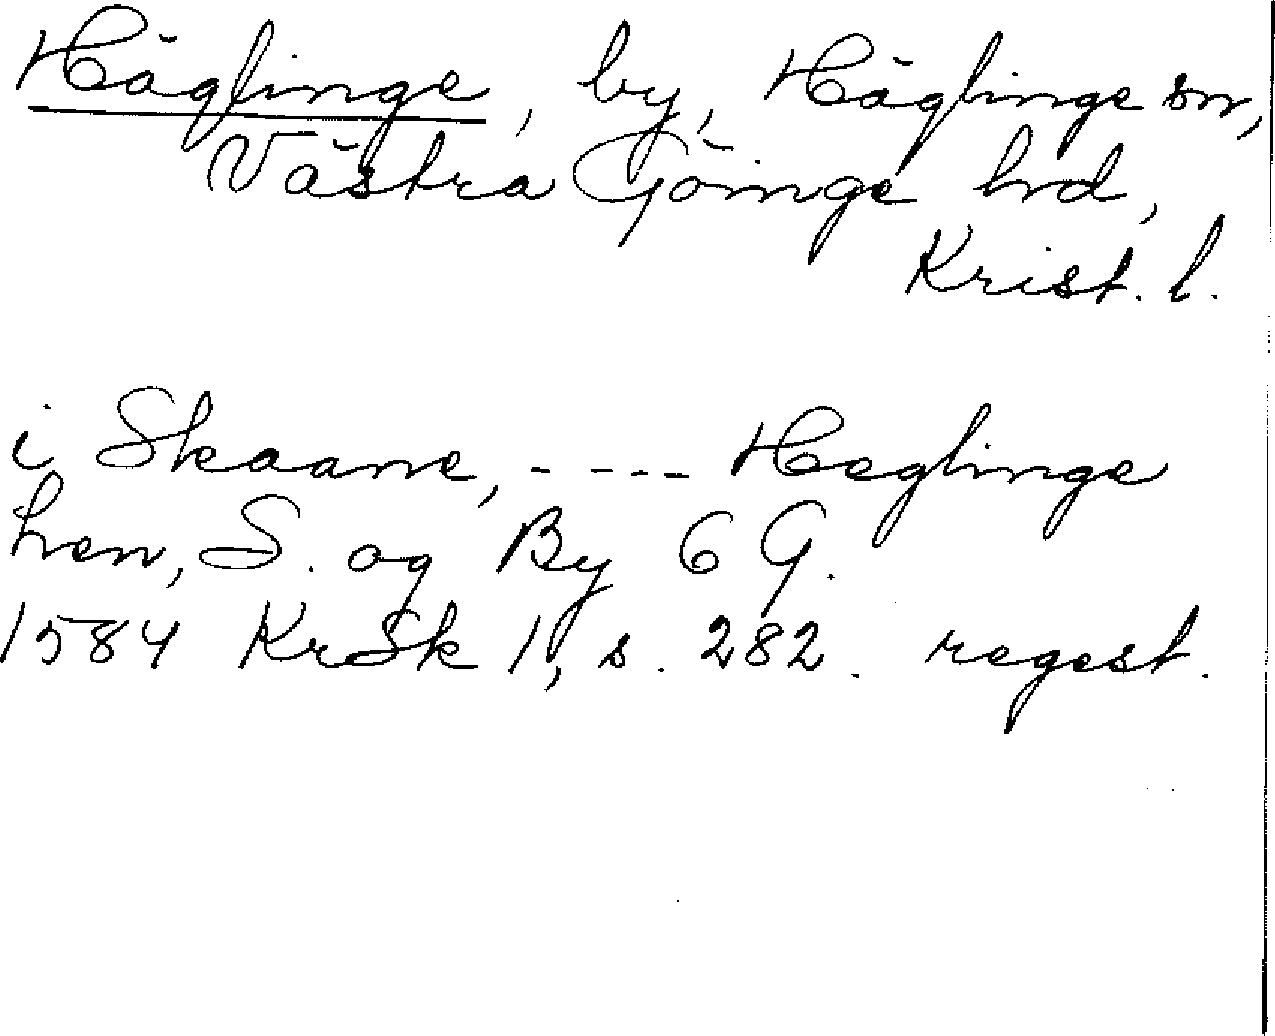 Häglinge, by, Häglinge sn,
Västra Göinge hrd,
Krist. l.
i Skaane, - - - - Heglinge
hen, S. og By 6 G.
1584 KrSk 1, s. 282. regest.